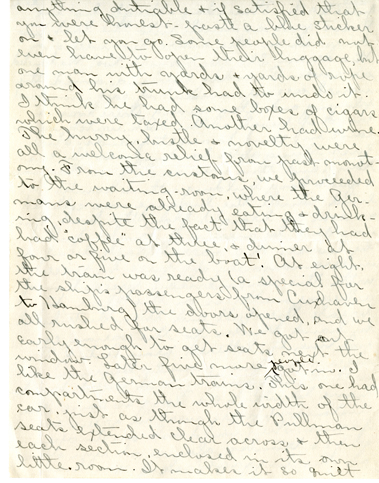 anything dutiable & if satisfied that
you were honest - paste a blue sticker
on & let you go. Some people did not
even have to open their luggage, but
one man with yards & yards of rope
around his trunk had to undo it.
I think he had some boxes of cigars
which were taxed. Another had wine.
The hurry, bustle & novelty were
all a welcome relief from past monot-
ony. From the customs, we proceeded
to the waiting-room, where the Ger-
mans were already eating & drink-
ing, despite the fact that they had
had "coffee" at three & dinner at
four or five on the boat! At eight
the train was ready (a special for
the ship's passengers from Cuxhaven
to Hamburg) the doors opened, and we
all rushed for seats. We got out
early enough to get seats next the
window. Later five more
like the German trains. This one had
compartments the whole width of the
car, just as though the Pullman
seats extended clear across & then
each section enclosed in its own
little room. It makes it so quiet